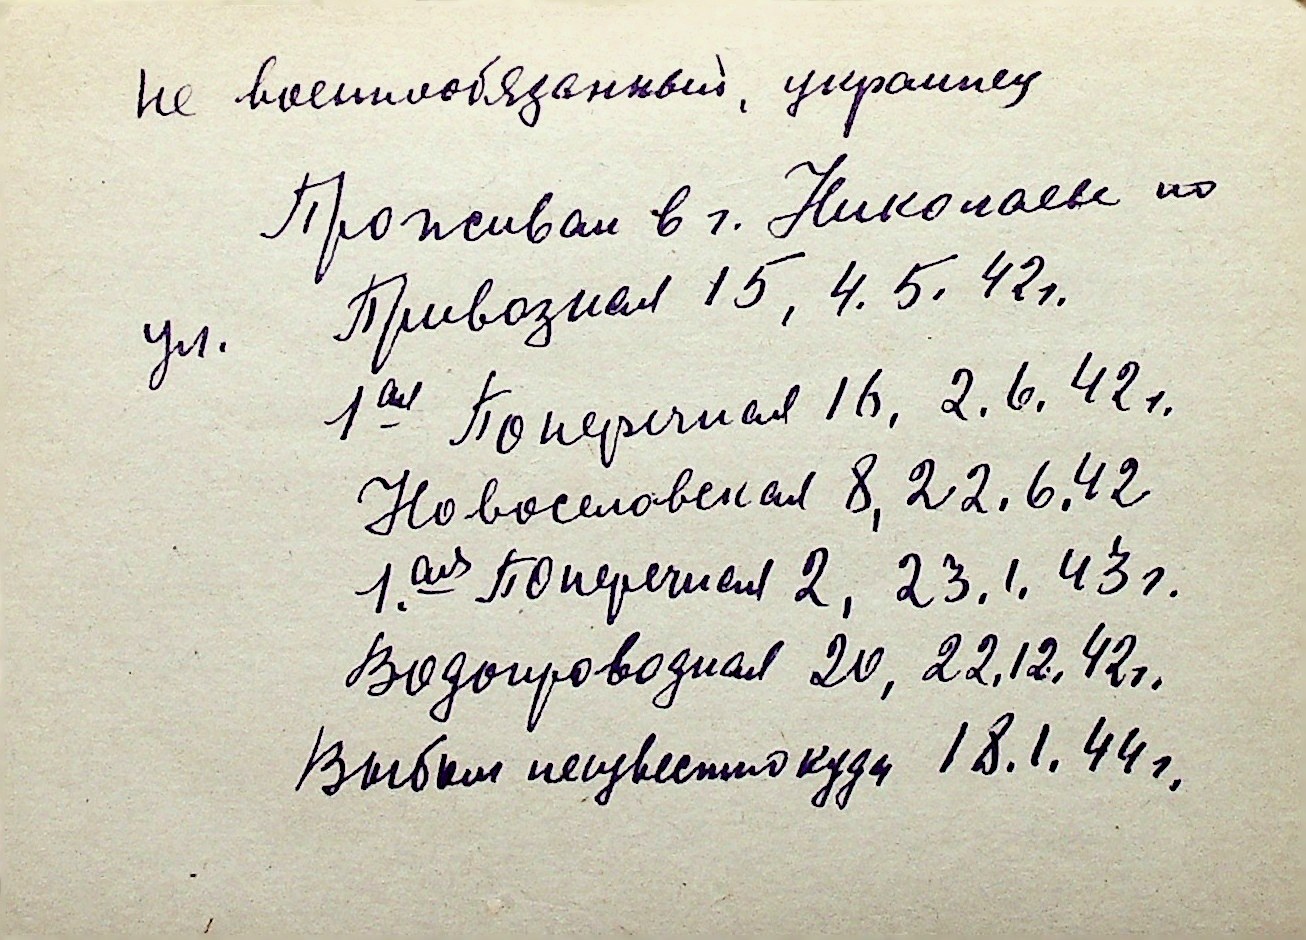 не военнообязанный, украинец
Проживал в г. Николаеве по
ул. Привозная 15, 4.5.42г.
1ая Поперечная 16, 2.6.42г.
Новоселовская 8, 22.6.42
1.ая Поперечная 2, 23.1.43г.
Водопроводная 20, 22.12.42г.
Выбыл неизвестно куда 18.1.44г.